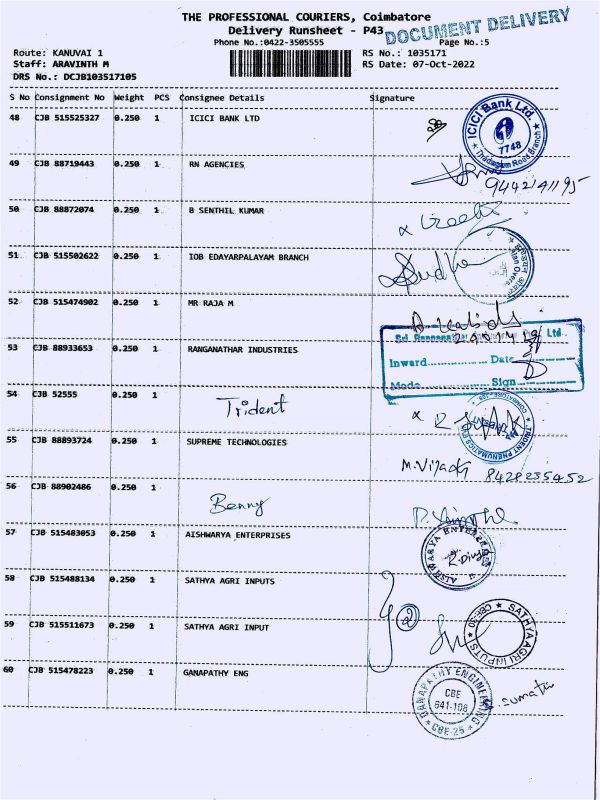 THE PROFESSIONAL COURIERS, Coimbatore
Delivery Runsheet - P43
DOCUMENT DELIVERY
Phone No.:0422-3505555
Page No.:5
Route: KANUVAI 1
RS No.: 1035171
Staff: ARAVINTH M
RS Date: 07-Oct-2022
DRS No.: DCJB103517105
S No Consignment No Weight PCS Consignee Details Signature
48 CJB 515525327 0.250 1 ICICI BANK LTD
ICICI Bank Ltd.
7748
Thadagam Road Branch
49 CJB 88719443 0.250 1 RN AGENCIES
9442141195
50 CJB 88872074 0.250 1 B SENTHIL KUMAR
x Geetha
51 CJB 515502622 0.250 1 IOB EDAYARPALAYAM BRANCH
Sudha
52 CJB 515474902 0.250 1 MR RAJA M
53 CJB 88933653 0.250 1 RANGANATHAR INDUSTRIES
Ltd.
Inward.............. Date
Mode.............. Sign
54 CJB 52555 0.250 1 Trident
TRIDENT PNEUMATICS
55 CJB 88893724 0.250 1 SUPREME TECHNOLOGIES
8428235452
56 CJB 88902486 0.250 1 Benny
57 CJB 515483053 0.250 1 AISHWARYA ENTERPRISES
AISHWARYA ENTERPRISES
R. Divya
58 CJB 515488134 0.250 1 SATHYA AGRI INPUTS
2
59 CJB 515511673 0.250 1 SATHYA AGRI INPUT
SATHYA AGRI INPUTS
CBE-30
60 CJB 515478223 0.250 1 GANAPATHY ENG
GANAPATHY ENGINEERING
CBE
641-108
CBE-25
Sumathi